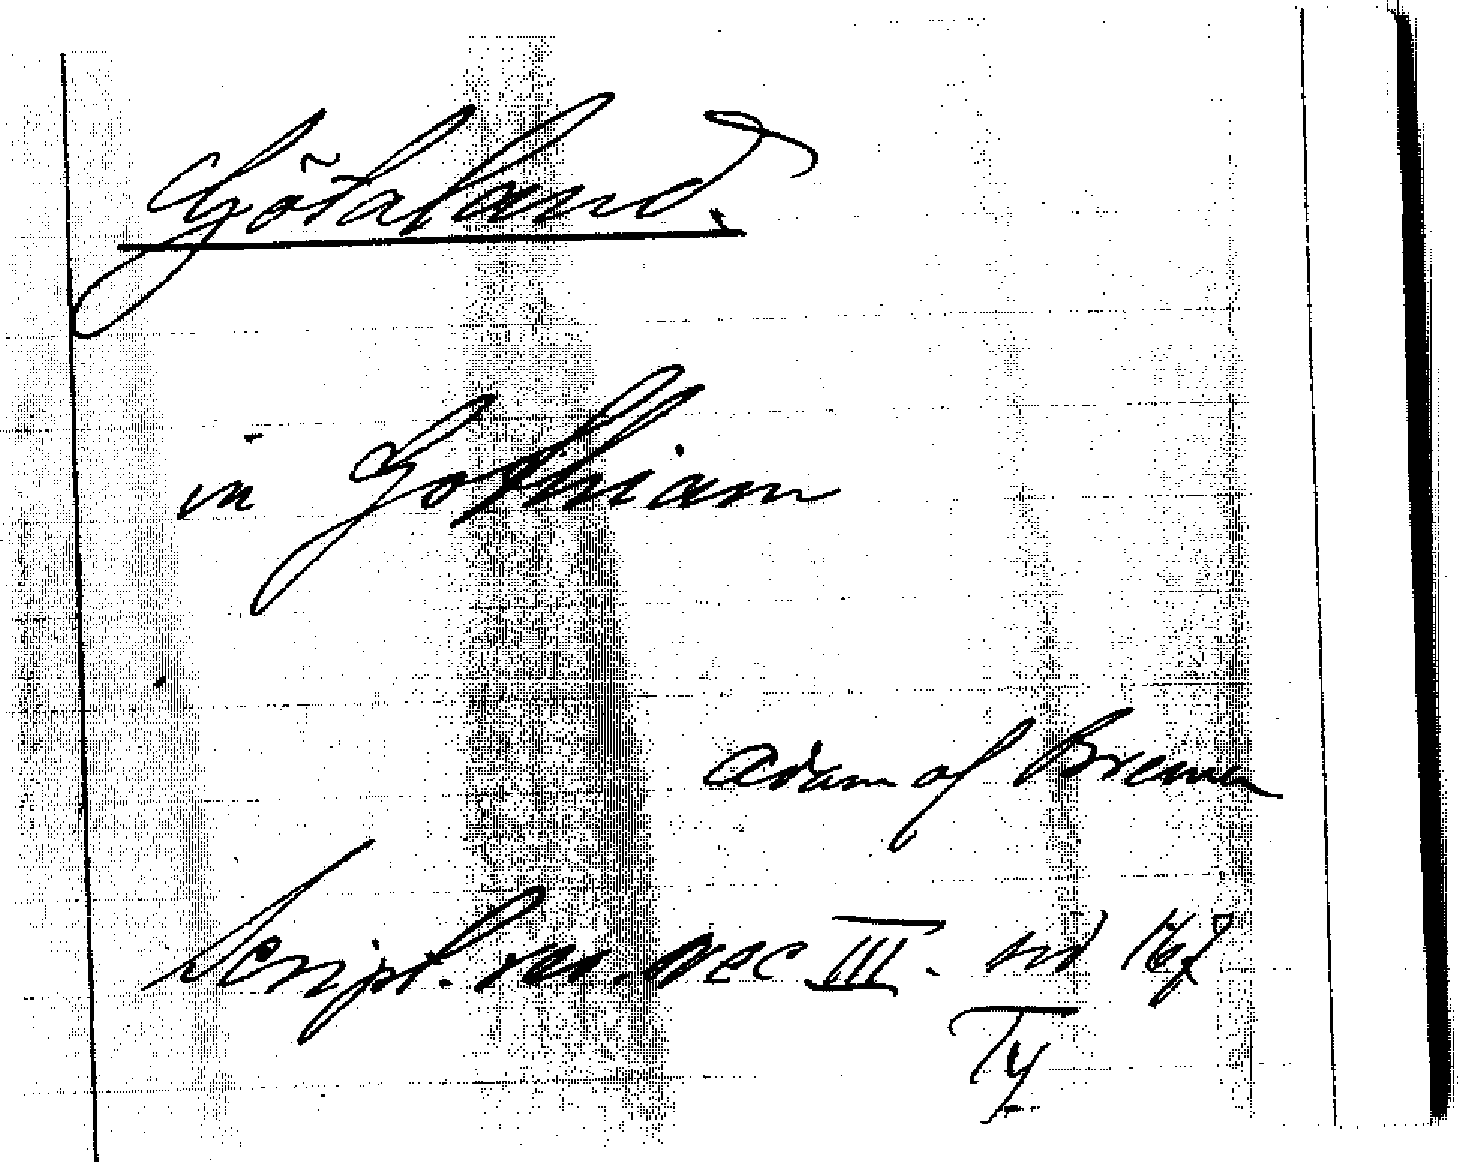 Götaland.
in Gothiam
Adam of Bremen
Script. rer. svec III. sid 167
Ty